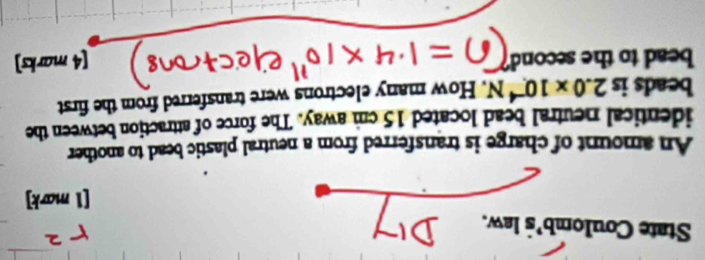 State Coulomb's law.
DIY
r²
[1 mark]
An amount of charge is transferred from a neutral plastic bead to another
identical neutral bead located 15 cm away. The force of attraction between the
beads is 2.0 × 10⁻⁴ N. How many electrons were transferred from the first
bead to the second?
(n = 1.4 × 10¹¹ electrons)
[4 marks]